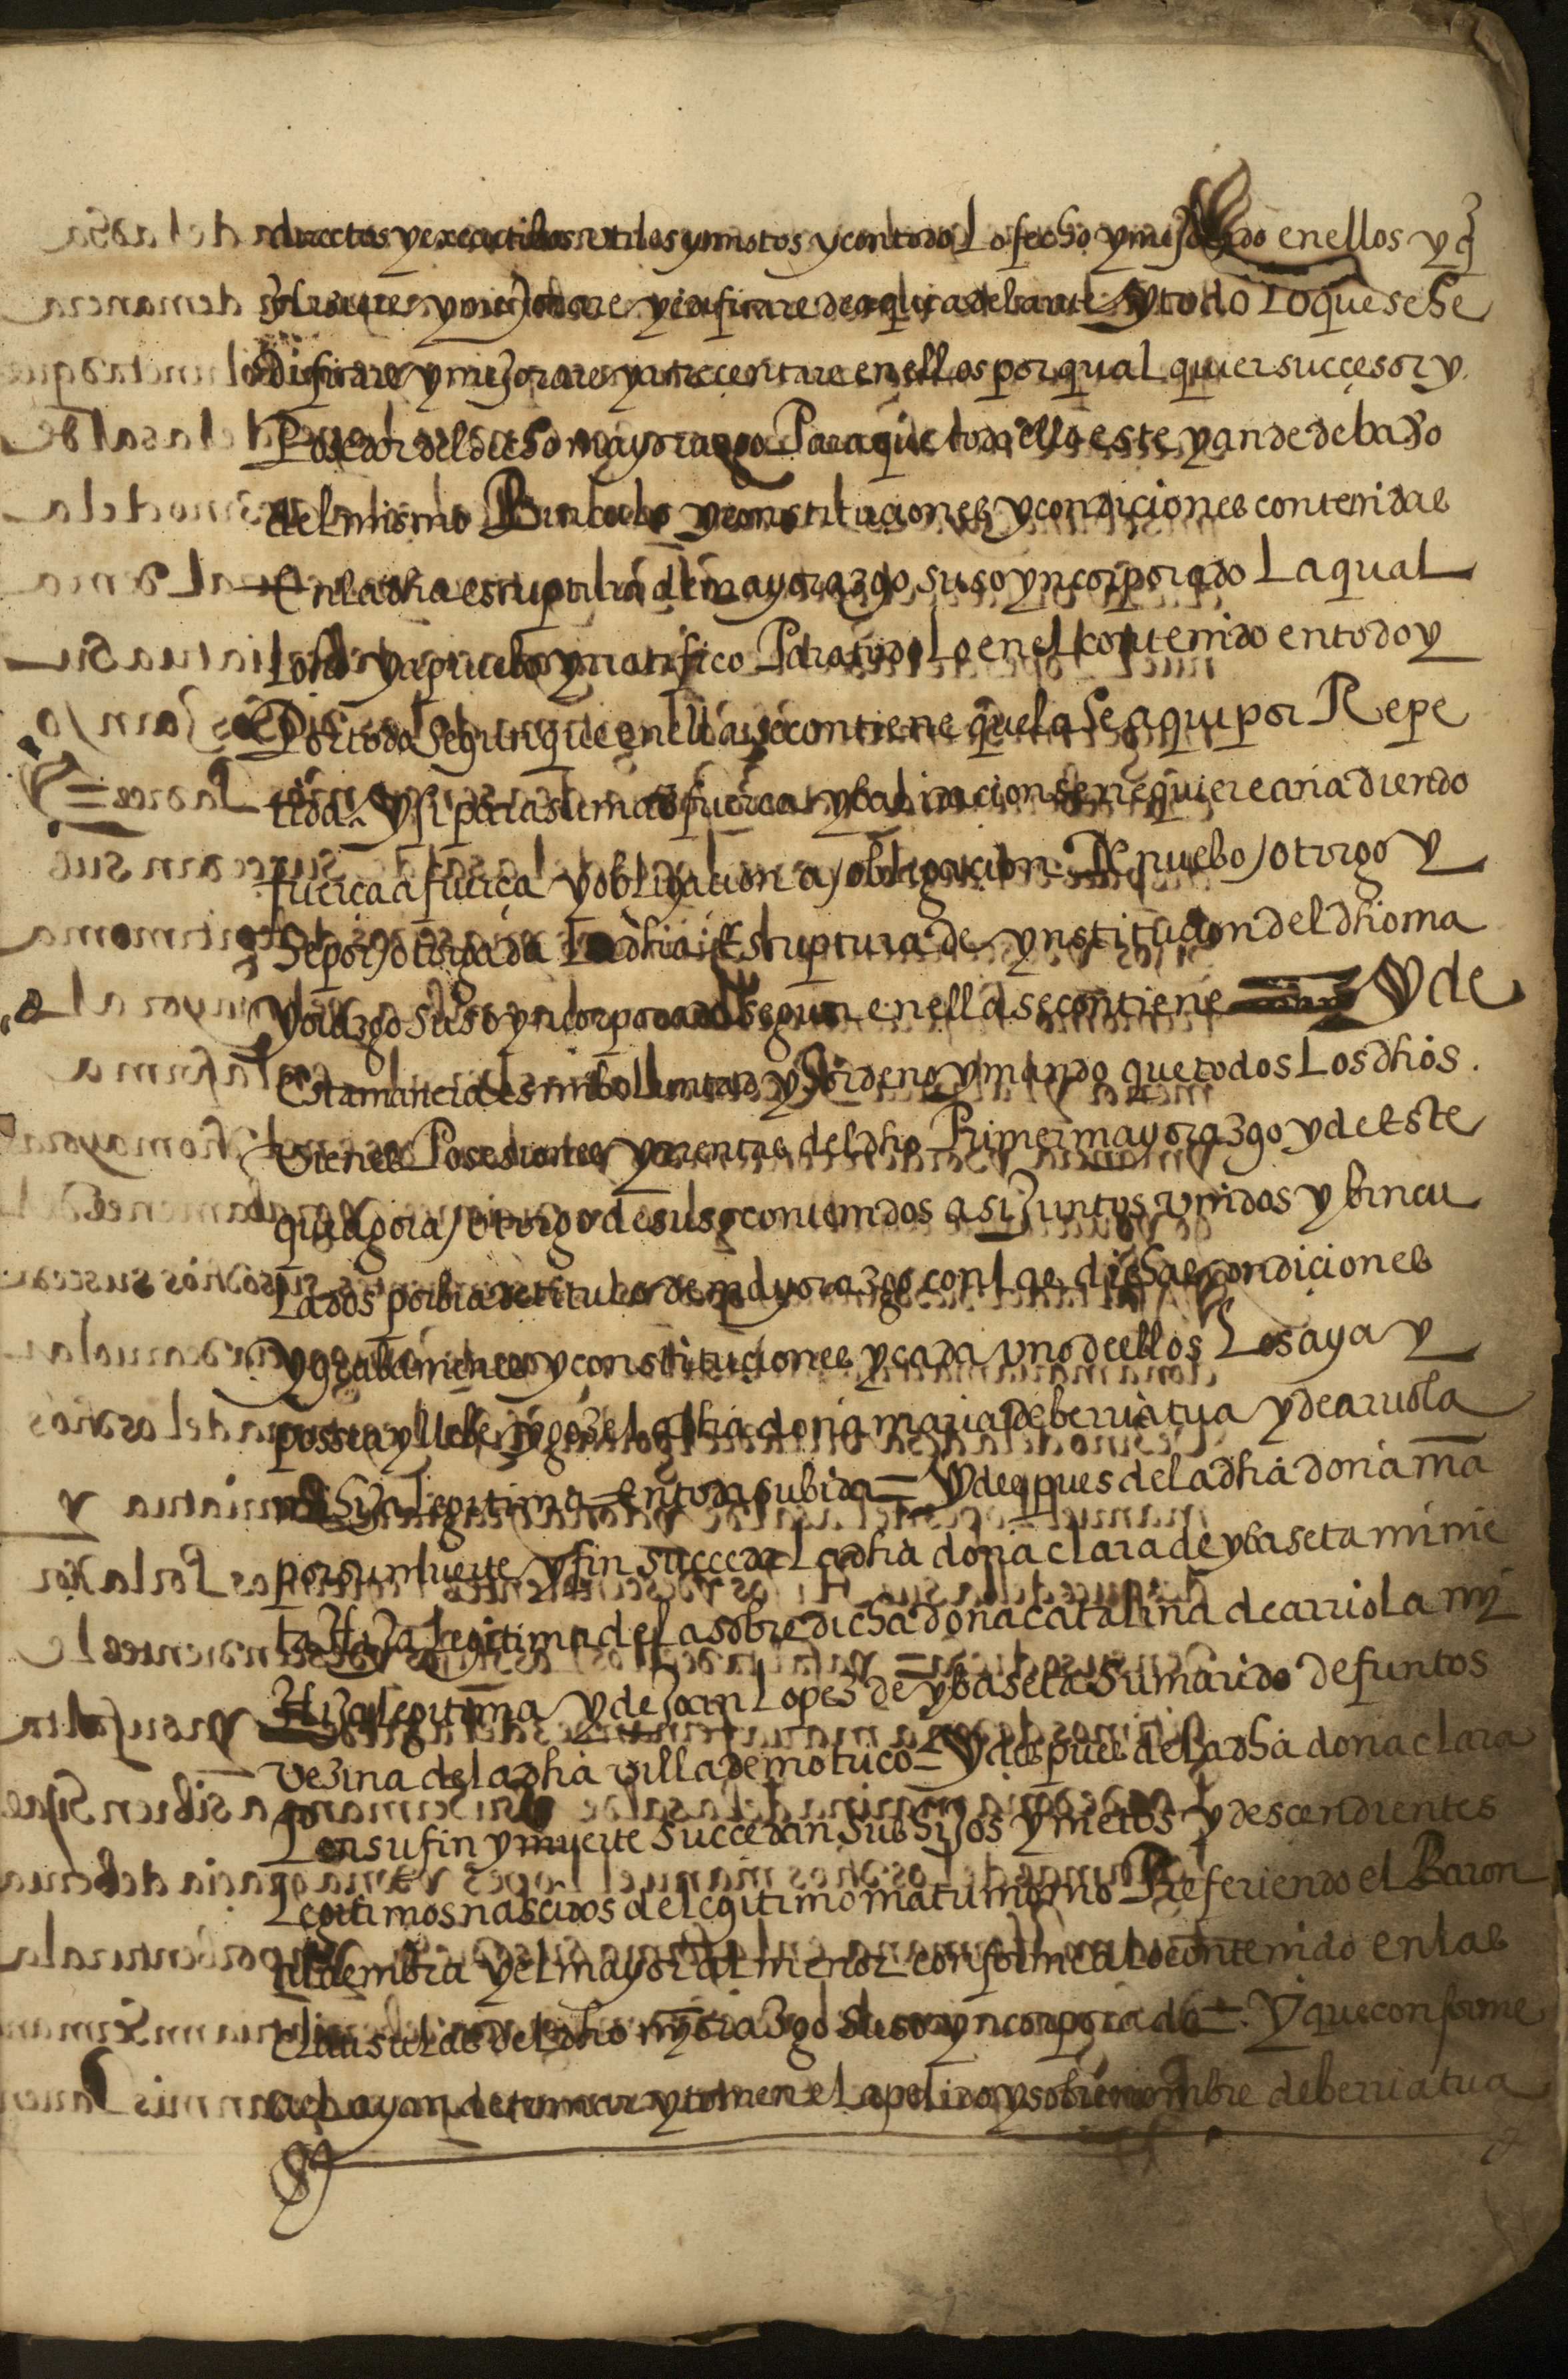 directos y executibos utiles y mistos y con todo Lo fecho y mejorado en ellos y q̃
yziere y mejorare y edificare de aqui adelante y todo Lo que se he
dificare y mejorare y acrecentare en ellos por qual quier succesor y
Posedor del decho mayorazgo Para que todo ello este y ande debaxo
del mismo Binculo y constituciones y condiciones contenidas
En la dha escriptura de mayorazgo suso yncorporado La qual
Loho y apruebo y ratifico Para todo Lo en el contenido en todo y
Por todo segun que en ella se contiene que la he aqui por Repe
tida. Y si para su mas fuerça y balidacion se requiere añadiendo
fuerça a fuerça y obligacion a obligacion De nuebo otorgo y
he por otorgada La dha escriptura de ynstitucion del dho ma
yorazgo suso yncorporado segun en ella se contiene Y de
Esta manera es mi boluntad y hordeno y mando que todos Los dhos
bienes Posesiones y rentas del dho Primer mayorazgo y de Este
que agora otorgo de suso contenidos asi Juntos unidos y bincu
Lados por bia de titulo de mayorazgo con Las dichas condiciones
y grabamenes y constituciones y cada uno de ellos Los aya y
possea y llebe y goze La dha doña maria de berriatua y de arriola
mi Hija legitima en toda su bida = Y despues de la dha doña mã
por su muerte y fin succeda La dha doña clara de ybaseta mi nie
ta Hija Legitima de La sobre dicha doña catalina de arriola mi
Hija legitima y de Joan Lopez de ybaseta su marido defuntos
vezina de la dha villa de motrico = Y despues de La dha doña clara
Por su fin y muerte succedan sus hijos y nietos y descendientes
Legitimos nascidos de legitimo matrimonio Prefiriendo el Baron
a la embra y el mayor al menor conforme a lo contenido en las
clausulas del dho mayorazgo suso yncorporado = Y que conforme
a el ayan de tomar y tomen el apelido y sobrenombre de berriatua